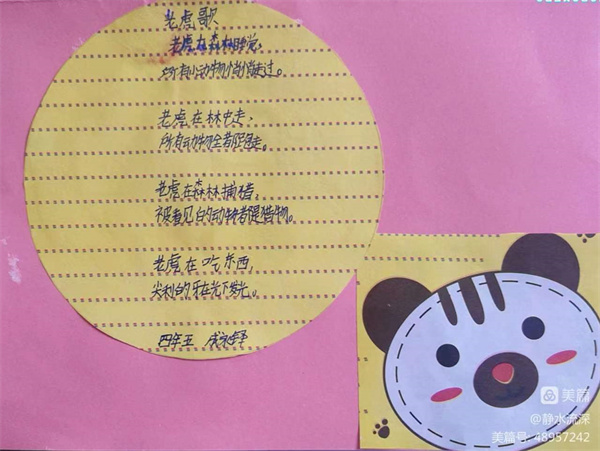 老虎歌
老虎在森林睡觉，
所有小动物悄悄走过。
老虎在林中走，
所有动物全都跟走。
老虎在森林捕猎，
被看见的动物都是猎物。
老虎在吃东西，
尖利的牙在光下发光。
四年五 成
美篇
@静水流深
美篇号: 48957242